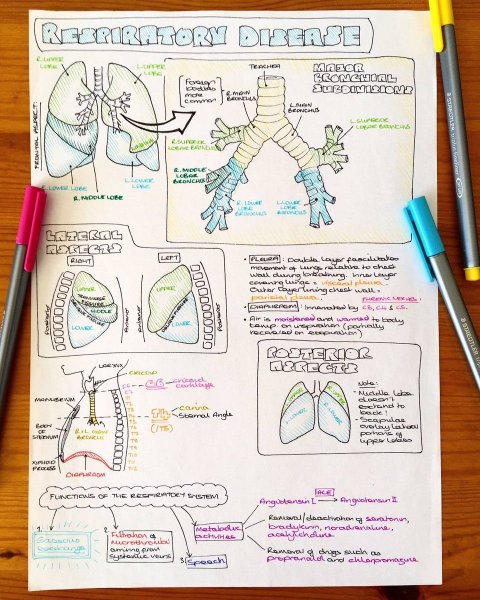 RESPIRATORY DISEASE
R.UPPER
LOBE
L.UPPER
LOBE
FRONTAL ASPECT:
R.LOWER LOBE
L.LOWER
LOBE
R.MIDDLE LOBE
MAJOR
BRONCHIAL
SUBDIVISIONS
TRACHEA
Foreign
bodies
more
common
R.MAIN
BRONCHUS
L.MAIN
BRONCHUS
R.SUPERIOR
LOBAR BRONCHUS
L.SUPERIOR
LOBAR BRONCHUS
R.MIDDLE
LOBAR
BRONCHUS
R.LOWER
LOBE
BRONCHUS
L.LOWER
LOBE
BRONCHUS
LATERAL
ASPECTS
RIGHT
LEFT
UPPER
MIDDLE
LOWER
UPPER
LOWER
• PLEURA: Double layer facilitates
movement of lungs relative to chest
wall during breathing. Inner layer
covering lungs = visceral pleura.
Outer layer lining chest wall =
parietal pleura.
PHRENIC NERVE!
• DIAPHRAGM: Innervated by C3, C4 & C5.
• Air is moistened and warmed to body
temp. on inspiration (partially
reversed on expiration)
LARYNX
CRICOID
C6
cricoid
cartilage
MANUBRIUM
BODY
OF
STERNUM
XIPHOID
PROCESS
DIAPHRAGM
T4
carina
Sternal Angle
(/T5)
POSTERIOR
ASPECTS
UPPER
UPPER
LOWER
LOWER
Note:
• Middle lobe
doesn't
extend to
back!
• Scapulae
overlay lateral
portions of
upper lobes
FUNCTIONS OF THE RESPIRATORY SYSTEM
1.
Gaseous
exchange
2.
Filtration of
microthrombi
arising from
systemic veins
3.
Speech
Metabolic
activities
ACE
Angiotensin I → Angiotensin II
Removal/deactivation of serotonin,
bradykinin, noradrenaline,
acetylcholine
Removal of drugs such as
propranolol and chlorpromazine
STAEDTLER